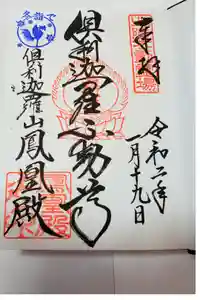 奉拝
令和二年
一月十九日
倶利迦羅不動尊
倶利迦羅山鳳凰殿